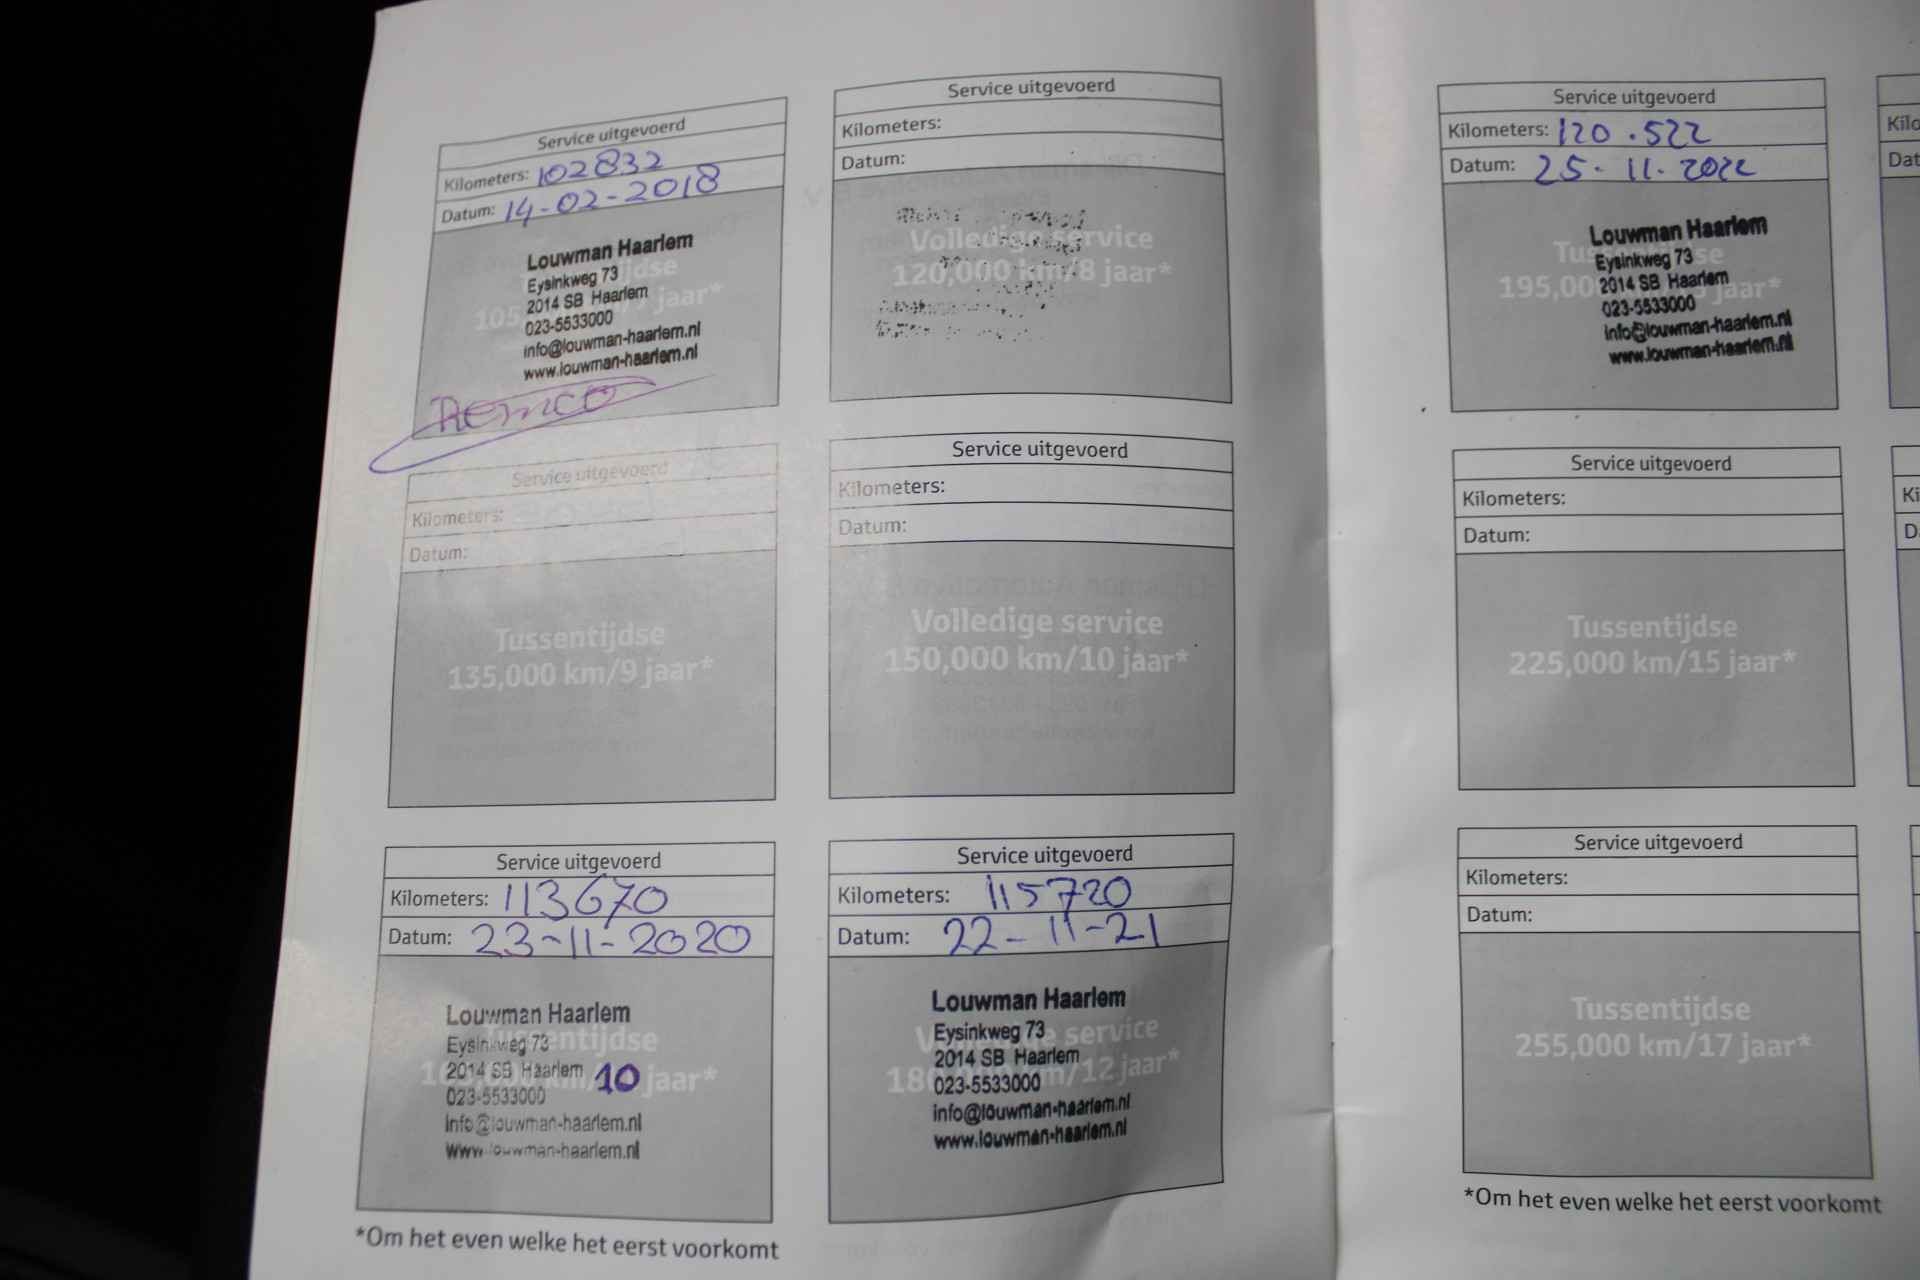 Service uitgevoerd
Kilometers: 102832
Datum: 14-02-2018
Louwman Haarlem
Eysinkweg 73
2014 SB Haarlem
023-5533000
info@louwman-haarlem.nl
www.louwman-haarlem.nl
Remco
Service uitgevoerd
Kilometers:
Datum:
Volledige service
120,000 km/8 jaar*
Service uitgevoerd
Kilometers: 120.522
Datum: 25-11-2022
Louwman Haarlem
Eysinkweg 73
2014 SB Haarlem
023-5533000
info@louwman-haarlem.nl
www.louwman-haarlem.nl
jaar*
Service uitgevoerd
Kilometers:
Datum:
Tussentijdse
135,000 km/9 jaar*
Service uitgevoerd
Kilometers:
Datum:
Volledige service
150,000 km/10 jaar*
Service uitgevoerd
Kilometers:
Datum:
Tussentijdse
225,000 km/15 jaar*
Service uitgevoerd
Kilometers: 113670
Datum: 23-11-2020
Louwman Haarlem
Eysinkweg 73
2014 SB Haarlem 10
023-5533000
info@louwman-haarlem.nl
www.louwman-haarlem.nl
jaar*
*Om het even welke het eerst voorkomt
Service uitgevoerd
Kilometers: 115720
Datum: 22-11-21
Louwman Haarlem
Eysinkweg 73
2014 SB Haarlem
023-5533000
info@louwman-haarlem.nl
www.louwman-haarlem.nl
service
km/12 jaar*
Service uitgevoerd
Kilometers:
Datum:
Tussentijdse
255,000 km/17 jaar*
*Om het even welke het eerst voorkomt